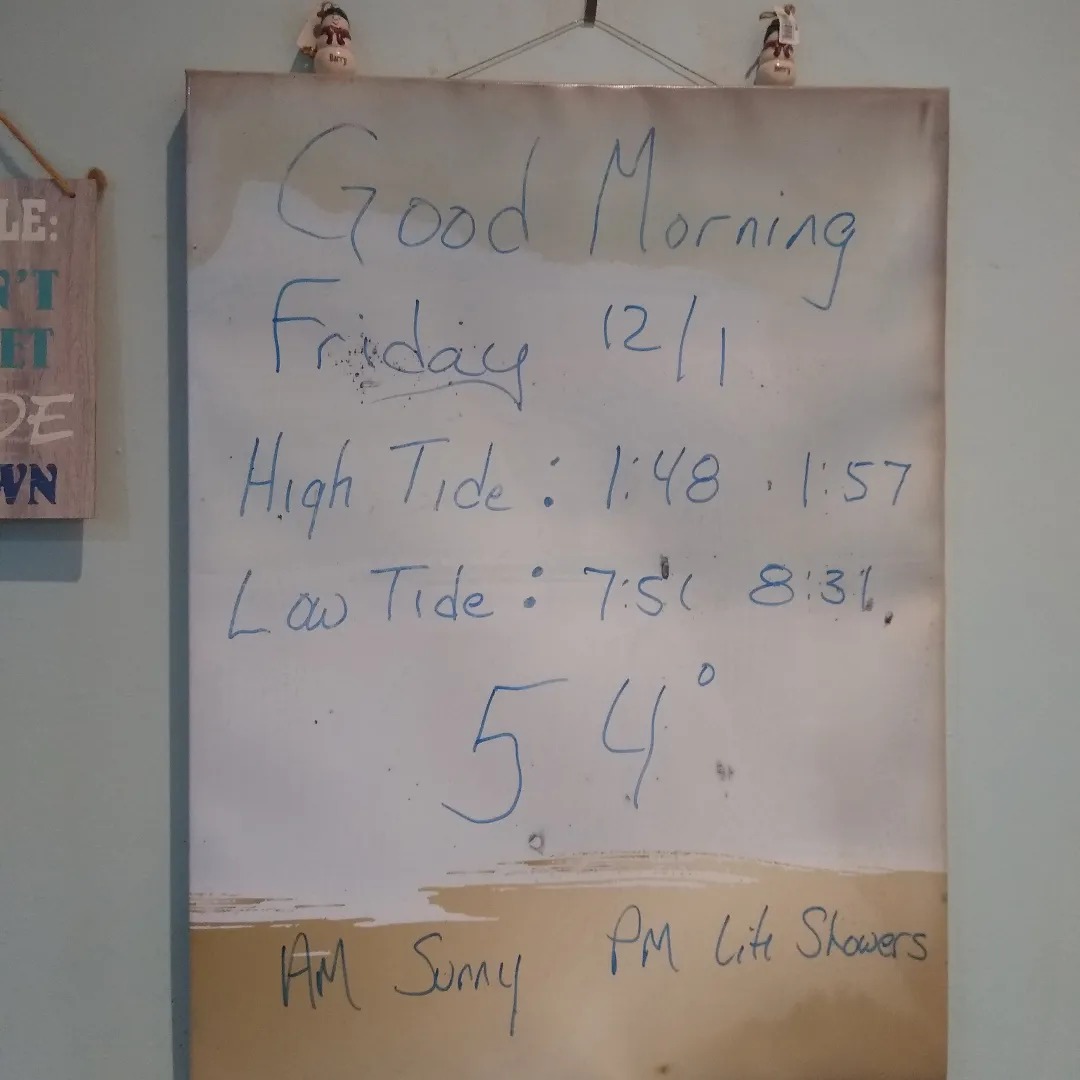 Barry
Barry
Good Morning
Friday 12/1
High Tide: 1:48 . 1:57
Low Tide: 7:51 8:31
54°
AM Sunny PM Lite Showers
LE:
N'T
ET
DE
WN